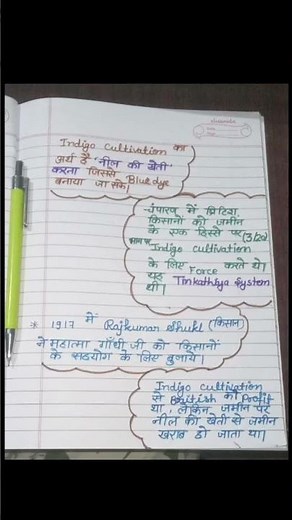 Indigo Cultivation का
अर्थ है 'नील की खेती'
करना जिससे Blue dye
बनाया जा सके।
चंपारण में ब्रिटिश
किसानों को जमीन
के एक हिस्से पर (3/20)
भाग पर Indigo cultivation
के लिए Force करते थे।
यह Tinkathiya System
थी।
* 1917 में Rajkumar Shukl (किसान)
ने महात्मा गाँधी जी को किसानों
के सहयोग के लिए बुलाये।
Indigo cultivation
से British को Profit
था, लेकिन जमीन पर
नील की खेती से जमीन
खराब हो जाता था।